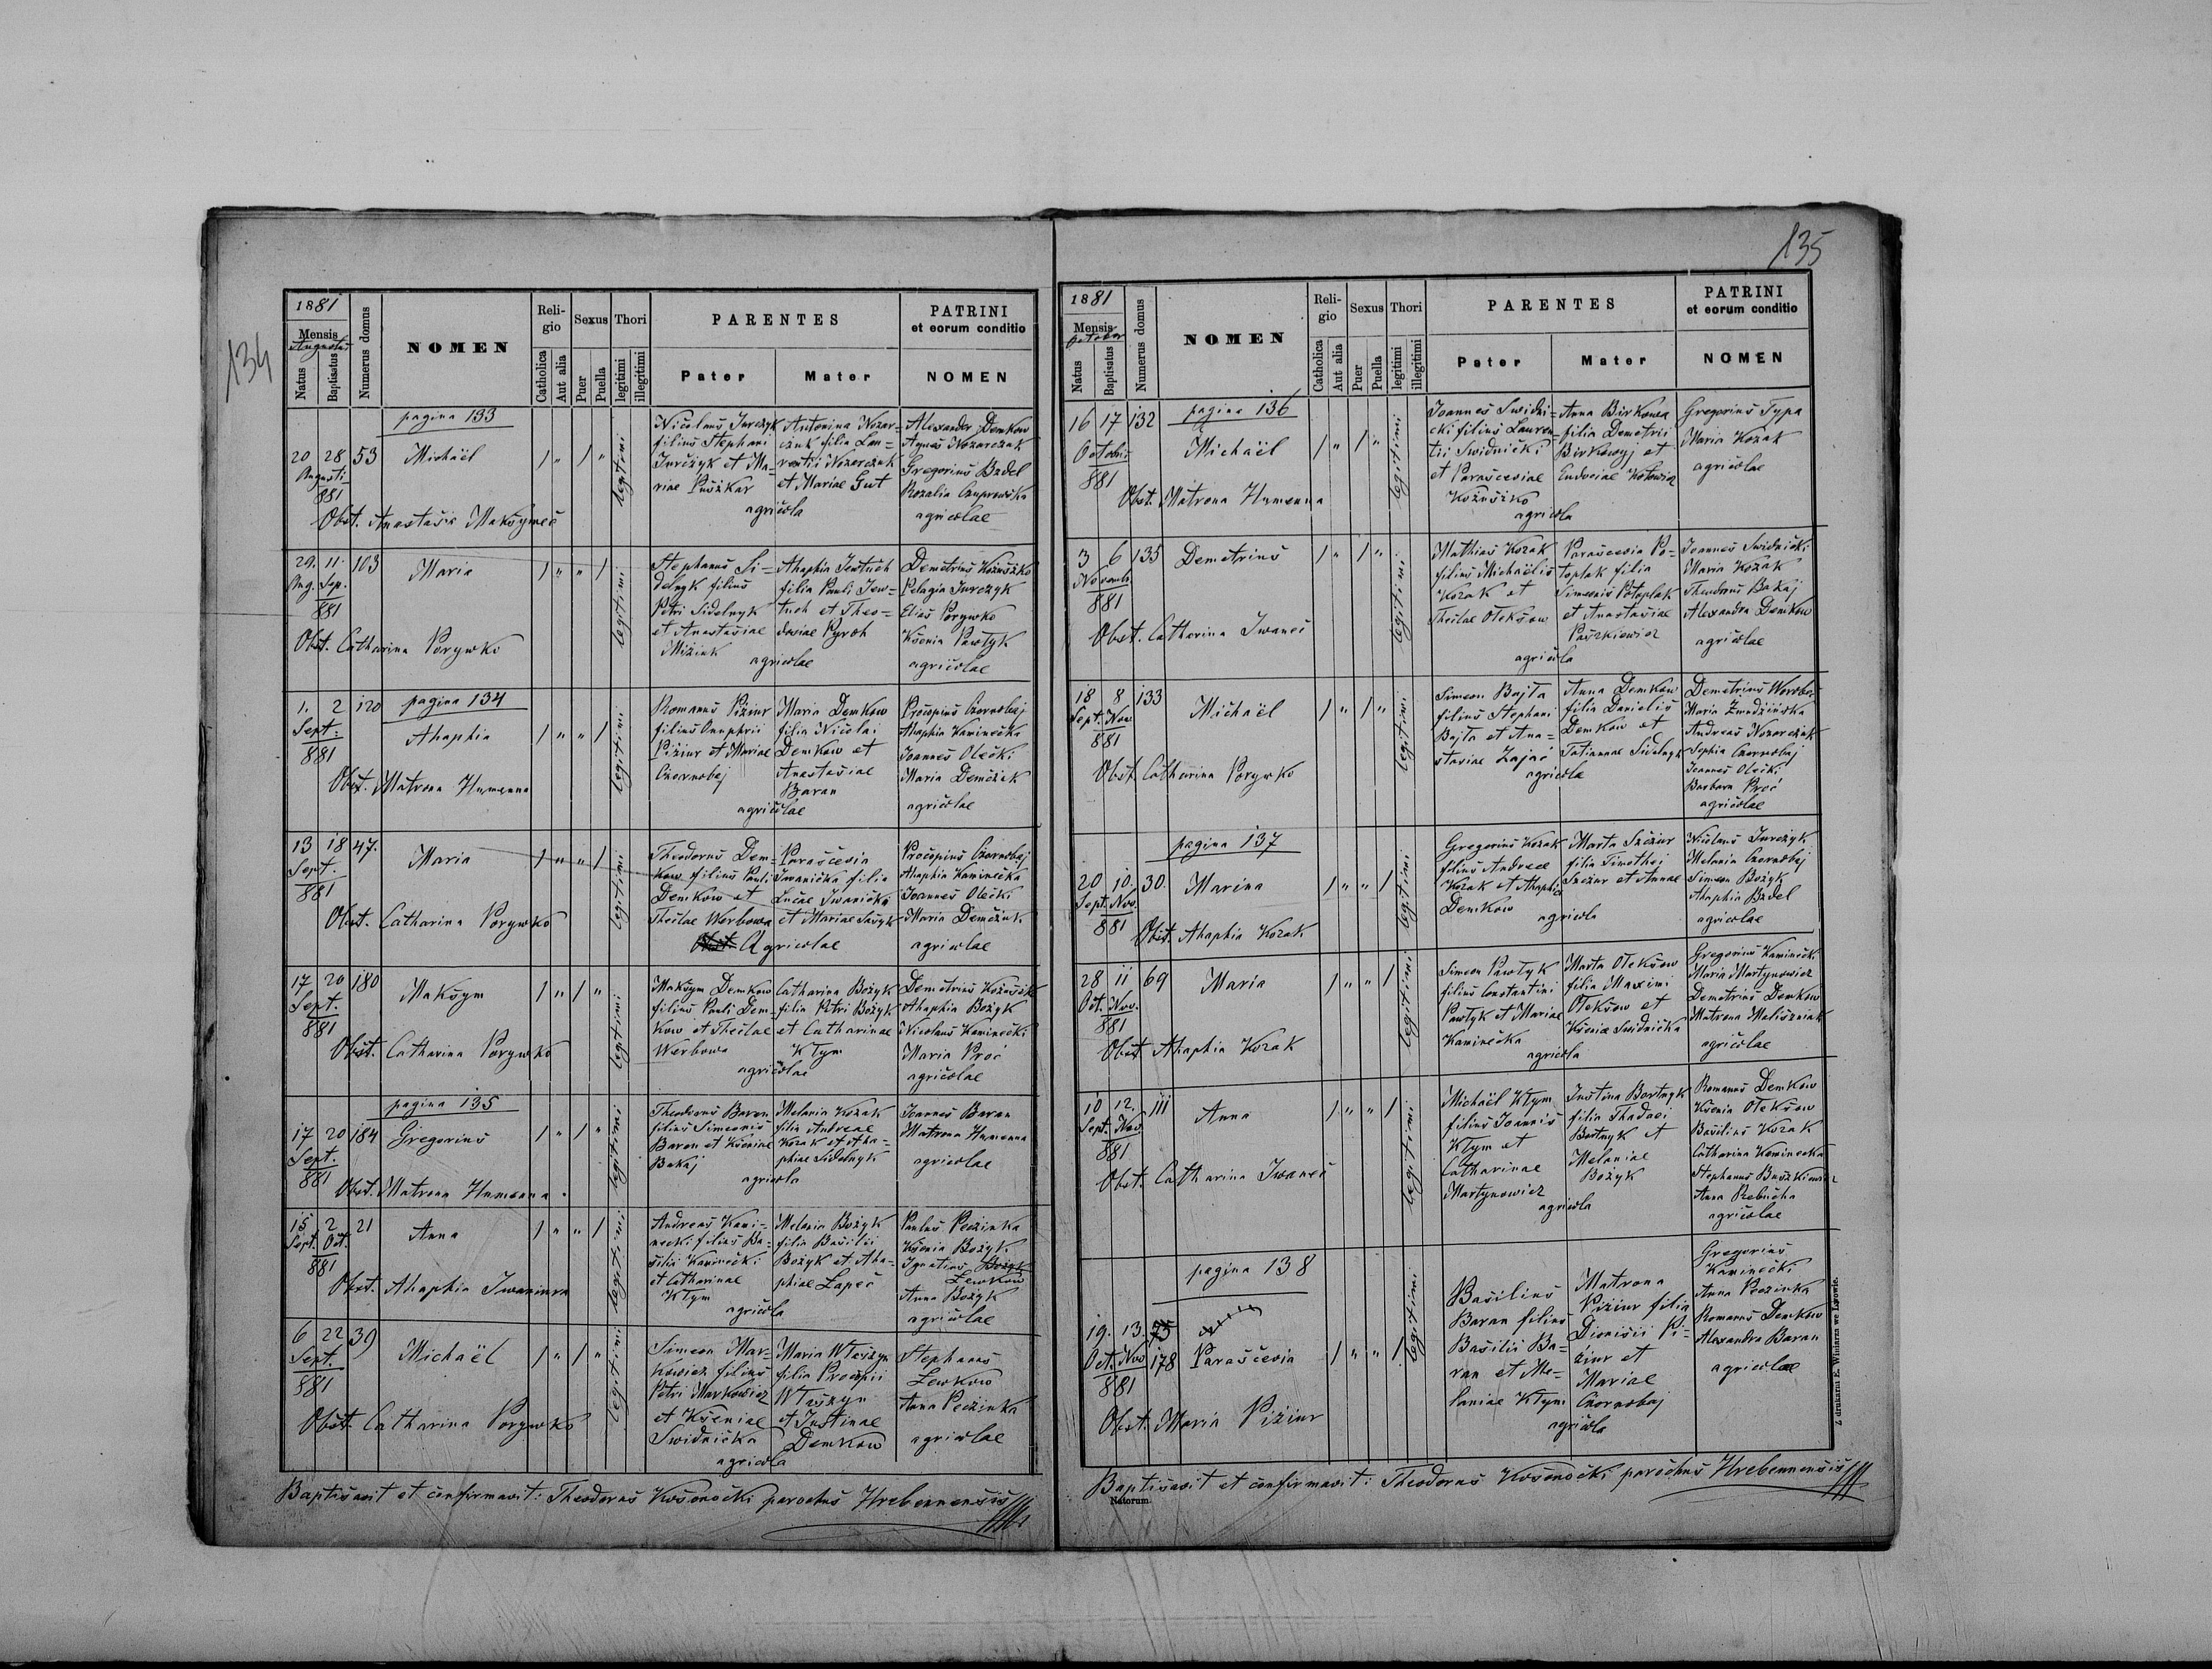 134
1881
Mensis
Augustus
Natus
Baptisatus
Numerus domus
NOMEN
Reli-
gio
Catholica
Aut alia
Sexus
Puer
Puella
Thori
legitimi
illegitimi
PARENTES
Pater
Mater
PATRINI
et eorum conditio
NOMEN
pagina 133
20 28 53 Michaël 1 " 1 "
Augusti
881
Obst. Anastasia Maksymeć
legitimi
Nicolaus Jurczyk
filius Stephani
Jurczyk et Ma-
riae Puszkar
Antonina Kozar-
czuk filia Lau-
rentii Kozarczuk
et Mariae Gut
agricola
Alexander Demkow
Agnes Kozarczuk
Gregorius Bzdel
Rozalia Czuprowska
agricolae
29. 11. 103 Maria 1 " " 1
Aug. Sep.
881
Obst. Catharina Porywko
legitimi
Stephanus Si-
delnyk filius
Petri Sidelnyk
et Anastasiae
Miziuk
Ahaphia Jewtuch
filia Pauli Jew-
tuch et Theo-
dosiae Pyroh
agricolae
Demetrius Kożuszko
Pelagia Jurczyk
Elias Porywko
Ksenia Pawłyk
agricolae
1. 2 120 pagina 134
Sept.
881
Ahaphia 1 " " 1
Obst. Matrona Humenna
legitimi
Romanus Piziur
filius Onuphrii
Piziur et Mariae
Czornobaj
Maria Demkow
filia Nicolai
Demkow et
Anastasiae
Baran
agricolae
Procopius Czornobaj
Ahaphia Kaminecka
Joannes Olecki
Maria Demczuk
agricolae
13 18 47. Maria 1 " " 1
Sept.
881
Obst. Catharina Porywko
legitimi
Theodorus Dem-
kow filius Pauli
Demkow et
Theclae Werbowa
Parascevia
Iwanicka filia
Lucae Iwanicki
et Mariae Sawyk
Agricolae
Procopius Czornobaj
Ahaphia Kaminecka
Joannes Olecki
Maria Demczuk
agricolae
17 20 180 Maksym 1 " 1 "
Sept.
881
Obst. Catharina Porywko
legitimi
Maksym Demkow
filius Pauli Dem-
kow et Theclae
Werbowa
Catharina Bożyk
filia Petri Bożyk
et Catharinae
Kłym
agricolae
Demetrius Kożuszko
Ahaphia Bożyk
Nicolaus Kaminecki
Maria Proć
agricolae
pagina 135
17 20 184 Gregorius 1 " 1 "
Sept.
881
Obst. Matrona Humenna.
legitimi
Theodorus Baran
filius Simeonis
Baran et Kseniae
Bakaj
Melania Kozak
filia Andreae
Kozak et Aha-
phiae Sidelnyk
agricola
Joannes Baran
Matrona Humenna
agricolae
15 2 21 Anna 1 " " 1
Sept. Oct.
881
Obst. Ahaphia
legitimi
Andreas Kami-
necki filius Ba-
silii Kaminecki
et Catharinae
Kłym
Melania Bożyk
filia Basilii
Bożyk et Aha-
phiae Łapeć
agricola
Paulus Peczinka
Ksenia Bożyk
Ignatius Bożyk
Lewkow
Anna Bożyk
agricolae
6 22 39 Michaël 1 " 1 "
Sept.
881
Obst. Catharina Porywko
legitimi
Simeon Mar-
kowicz filius
Petri Markowicz
et Kseniae
Swidnicka
Maria
filia Procopii
et Justinae
Demkow
agricola
Stephanus
Lewkow
Anna Peczinka
agricolae
Baptisavit et confirmavit: Theodorus Kosonocki parochus Hrebennensis
135
1881
Mensis
October
Natus
Baptisatus
Numerus domus
NOMEN
Reli-
gio
Catholica
Aut alia
Sexus
Puer
Puella
Thori
legitimi
illegitimi
PARENTES
Pater
Mater
PATRINI
et eorum conditio
NOMEN
16 17 132 pagina 136
Octobris
881
Michaël 1 " 1 "
Obst. Matrona Humenna
legitimi
Joannes Swidni-
cki filius Lauren-
tii Swidnicki
et Parasceviae
Kożuszko
Anna Birkowa
filia Demetrii
Birkowyj et
Eudociae Kotowicz
agricola
Gregorius Typa
Maria Kozak
agricolae
3 6 135 Demetrius 1 " 1 "
Novemb.
881
Obst. Catharina Iwaneć
legitimi
Mathias Kozak
filius Michaëlis
Kozak et
Theclae Oleksow
Parascevia Po-
toplak filia
Simeonis Potoplak
et Anastasiae
Paszkiewicz
agricola
Joannes Swidnicki
Maria Kozak
Theodorus Bakaj
Alexandra Demkow
agricolae
18 8 133 Michaël 1 " 1 "
Sept. Nov.
881
Obst. Catharina Porywko
legitimi
Simeon Bajta
filius Stephani
Bajta et Ana-
stasiae Zając
Anna Demkow
filia Danielis
Demkow et
Tatiannae Sidelnyk
agricolae
Demetrius
Maria
Andreas Kozorczuk
Sophia Czornobaj
Joannes Olecki
Barbara Proć
agricolae
pagina 137
20 10. 30. Marina 1 " " 1
Sept. Nov.
881
Obst. Ahaphia Kozak
legitimi
Gregorius Kozak
filius Andreae
Kozak et Ahaphiae
Demkow
Marta Szczur
filia Timothei
Szczur et Annae
agricola
Nicolaus Jurczyk
Melania Czornobaj
Simeon Bożyk
Ahaphia Bzdel
agricolae
28 11 69 Maria 1 " " 1
Oct. Nov.
881
Obst. Ahaphia Kozak
legitimi
Simeon Pawłyk
filius Constantini
Pawłyk et Mariae
Kaminecka
Marta Oleksow
filia Maximi
Oleksow et
Kseniae Swidnicka
agricola
Gregorius Kaminecki
Maria Martynowicz
Demetrius Demkow
Matrona Maliszniak
agricolae
10 12. 111 Anna 1 " " 1
Sept. Nov.
881
Obst. Catharina Iwaneć
legitimi
Michaël Kłym
filius Joannis
Kłym et
Catharinae
Martynowicz
Justina Bortnyk
filia Thadaei
Bortnyk et
Melaniae
Bożyk
agricola
Romanus Demkow
Ksenia Oleksow
Basilius Kozak
Catharina Kaminecka
Stephanus
Anna
agricolae
pagina 138
19. 13. 75
Oct. Nov. 178 Parascevia 1 " " 1
881
Obst. Maria Piziur
legitimi
Basilius
Baran filius
Basilii Ba-
ran et Me-
laniae Kłym
Matrona
Piziur filia
Dionisii Pi-
ziur et
Mariae
Czornobaj
agricola
Gregorius
Kaminecki
Anna Peczinka
Romanus Demkow
Alexandra Baran
agricolae
Baptisavit et confirmavit: Theodorus Kosonocki parochus Hrebennensis
Natorum.
Z drukarni E. Winiarza we Lwowie.